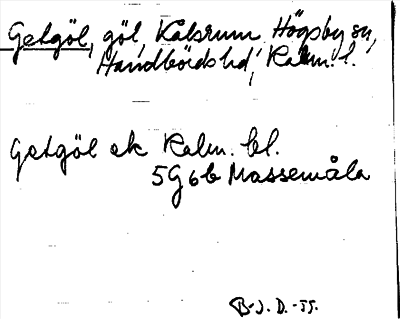 Getgöl, göl, Kalsrum Högsby sn,
Handbörds hd, Kalm. l.
Getgöl ek Kalm. bl.
5G6b Massemåla
B-J. D. -55.